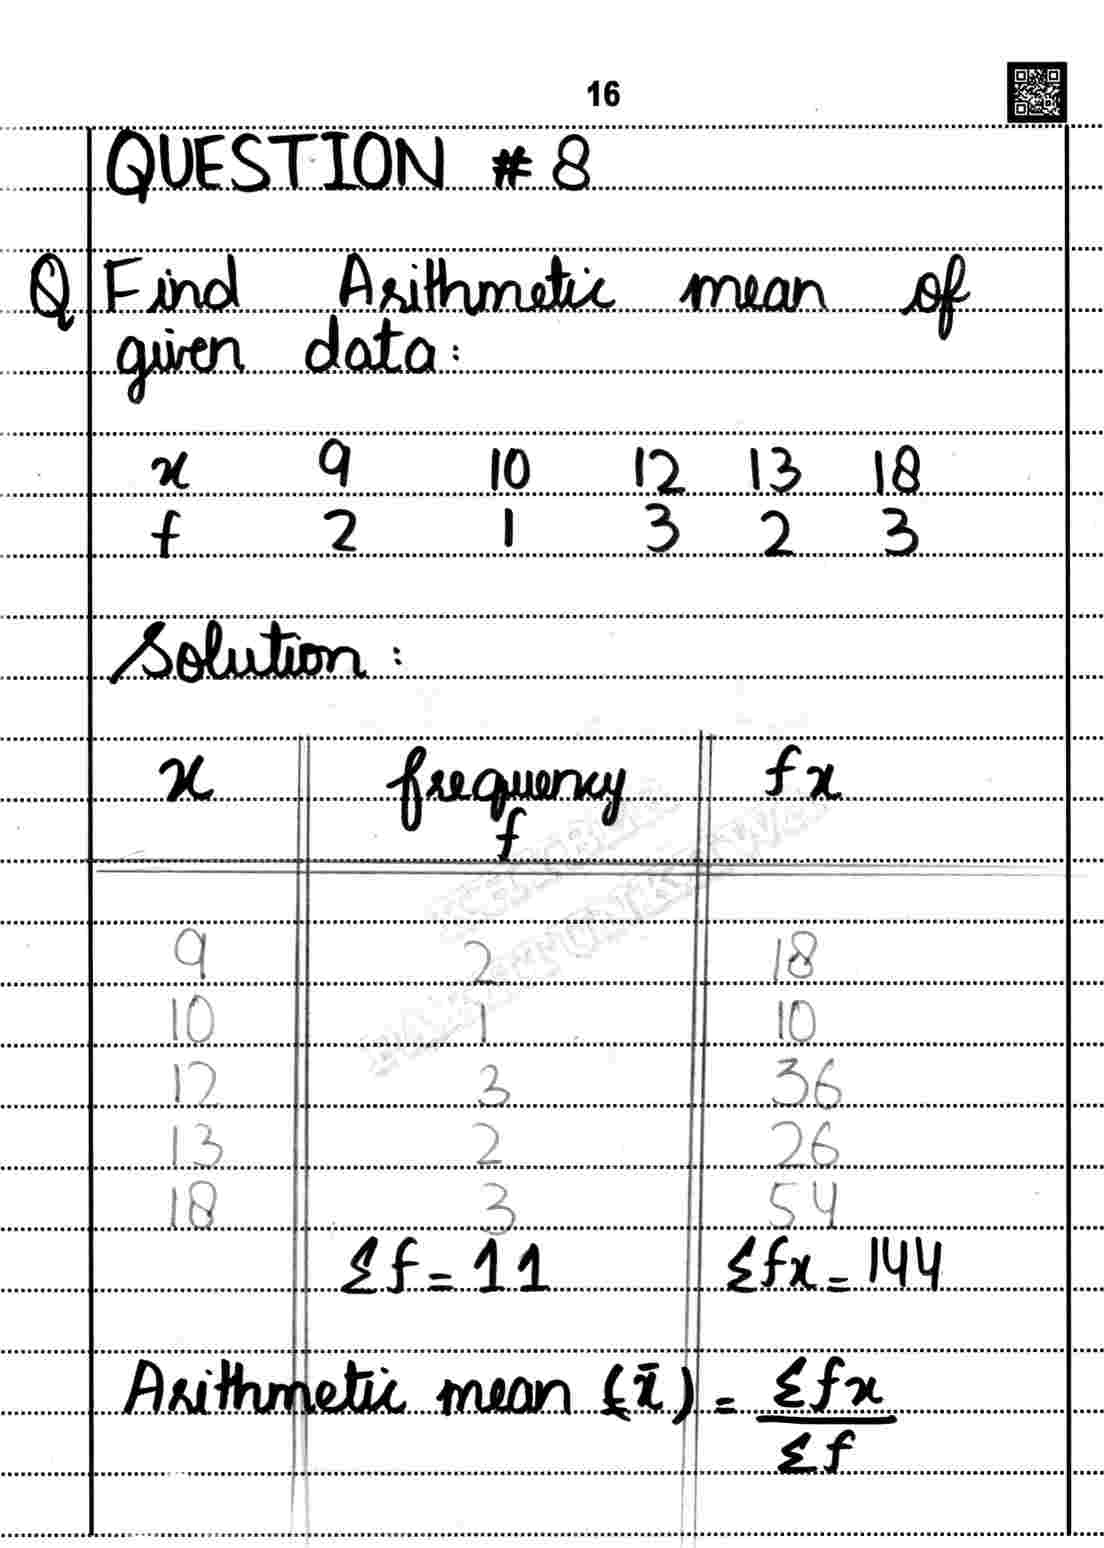 16
QUESTION # 8
Q Find Arithmetic mean of
given data:
x 9 10 12 13 18
f 2 1 3 2 3
Solution:
x frequency fx
f
9 2 18
10 1 10
12 3 36
13 2 26
18 3 54
Σf = 11 Σfx = 144
Arithmetic mean (x̄) = Σfx
Σf